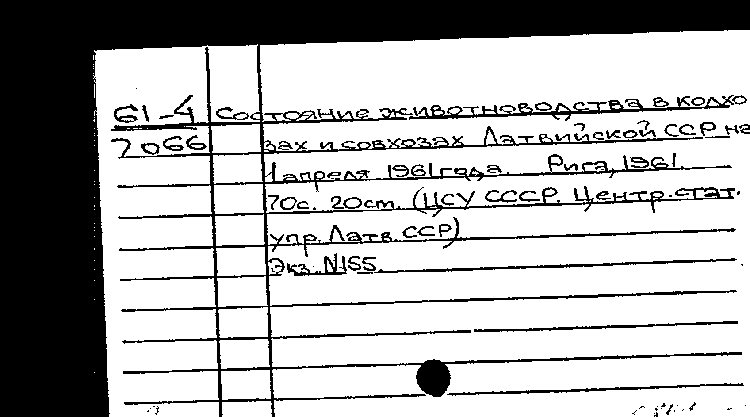 61-4 Состояние животноводства в колхо
7066 зах и совхозах Латвийской ССР на
1 апреля 1961 года. Рига, 1961.
70с. 20см. (ЦСУ СССР. Центр. стат.
упр. Латв. ССР)
Экз. №155.